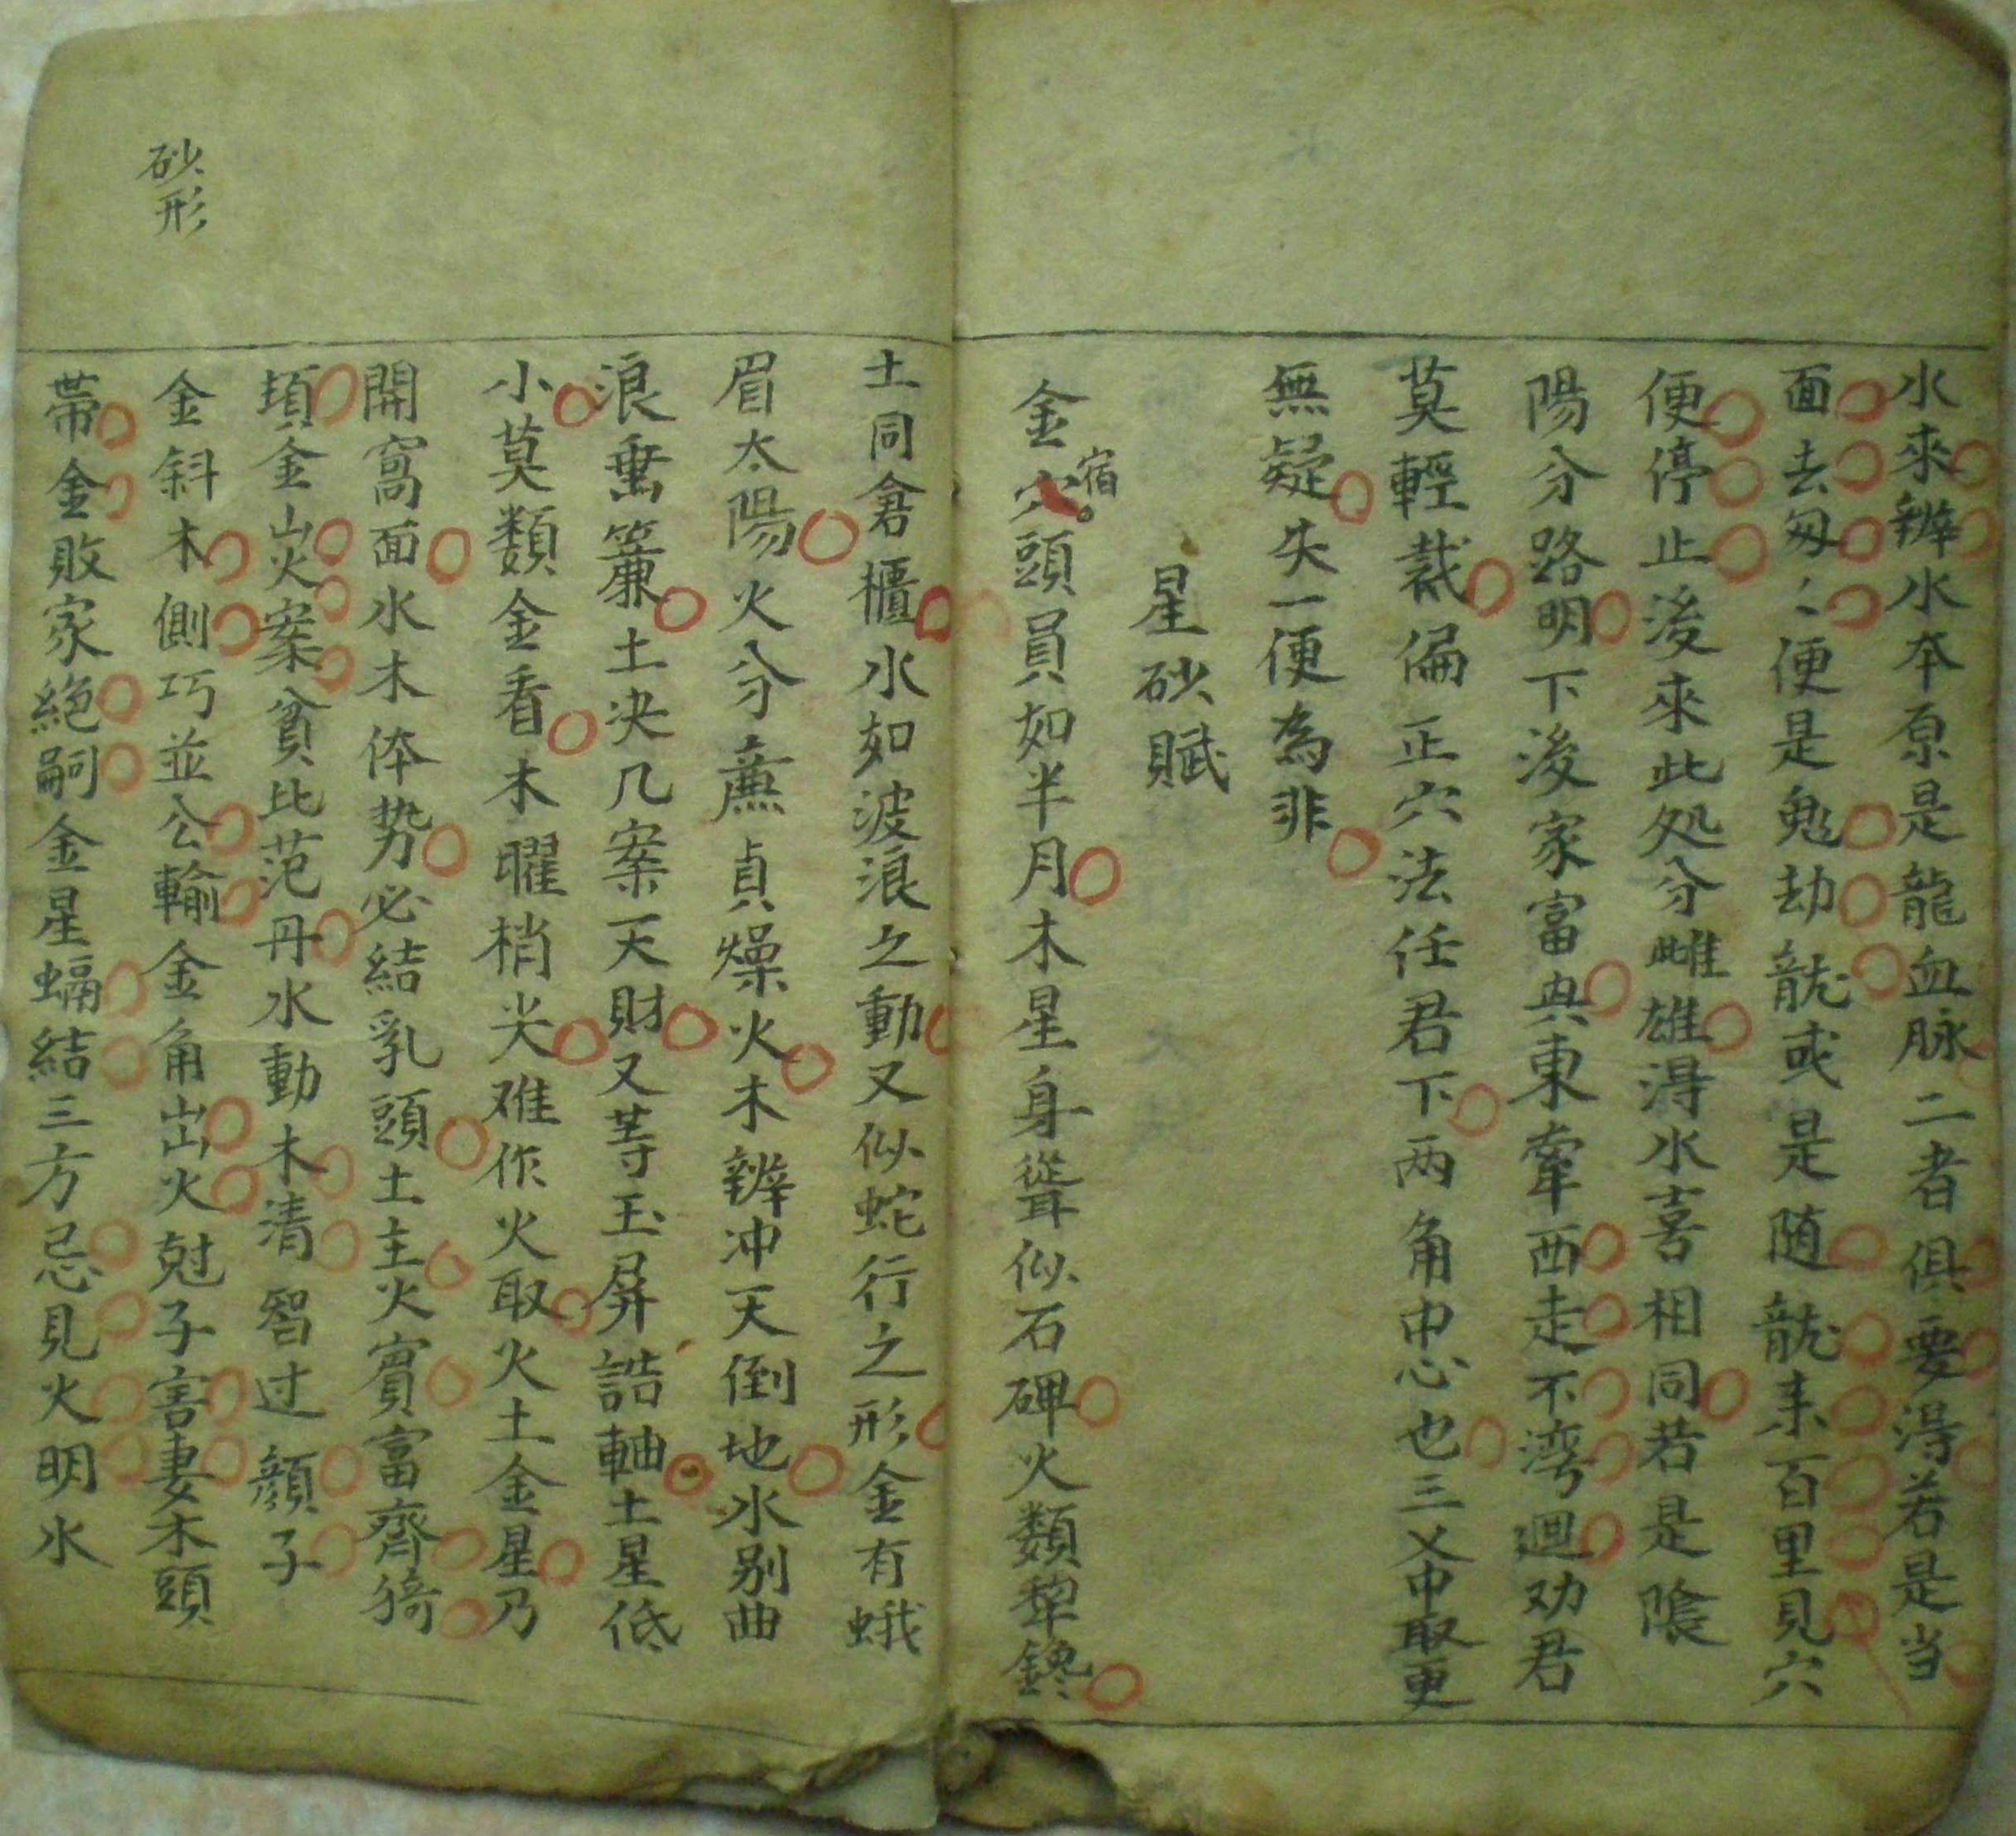 水來辦水夲原是龍血脉二者俱要淂若是当
面去匆〻便是鬼劫龍或是随龍来百里見穴
便停止後來此処分雌雄淂水喜相同若是陰
陽分路明下後家富興東牽西走不湾迴劝君
莫輕裁偏正穴法任君下两角中心也三义中取更
無疑失一便為非
星砂賦
金穴頭員如半月木星身聳似石碑火類犂鑱
宿
土同倉櫃水如波浪之動又似蛇行之形金有蛾
眉太陽火分蔗貞燥火木辦冲天倒地水别曲
浪垂簾土决几案天財又等玉屏誥軸土星低
小莫類金看木曜梢尖难作火取火土金星乃
開窩面水木体势必結乳頭土主火賓富齊猗
頓金出火案貧比范丹水動木清智过顔子
金斜木側巧並公輸金角出火尅子害妻木頭
帶金敗家絶嗣金星蝹結三方忌見火明水
砂形